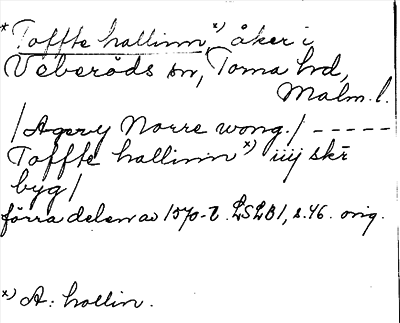 * Toffte hallinn, x) åker i
Veberöds sn, Torna hd,
Malm. l.
/Agery Norre wong./ -----
Toffte hallinn x) iiij skr
byg/
förra delen av 1570-t. LSLB1, s. 46. orig.
x) A: hollin.